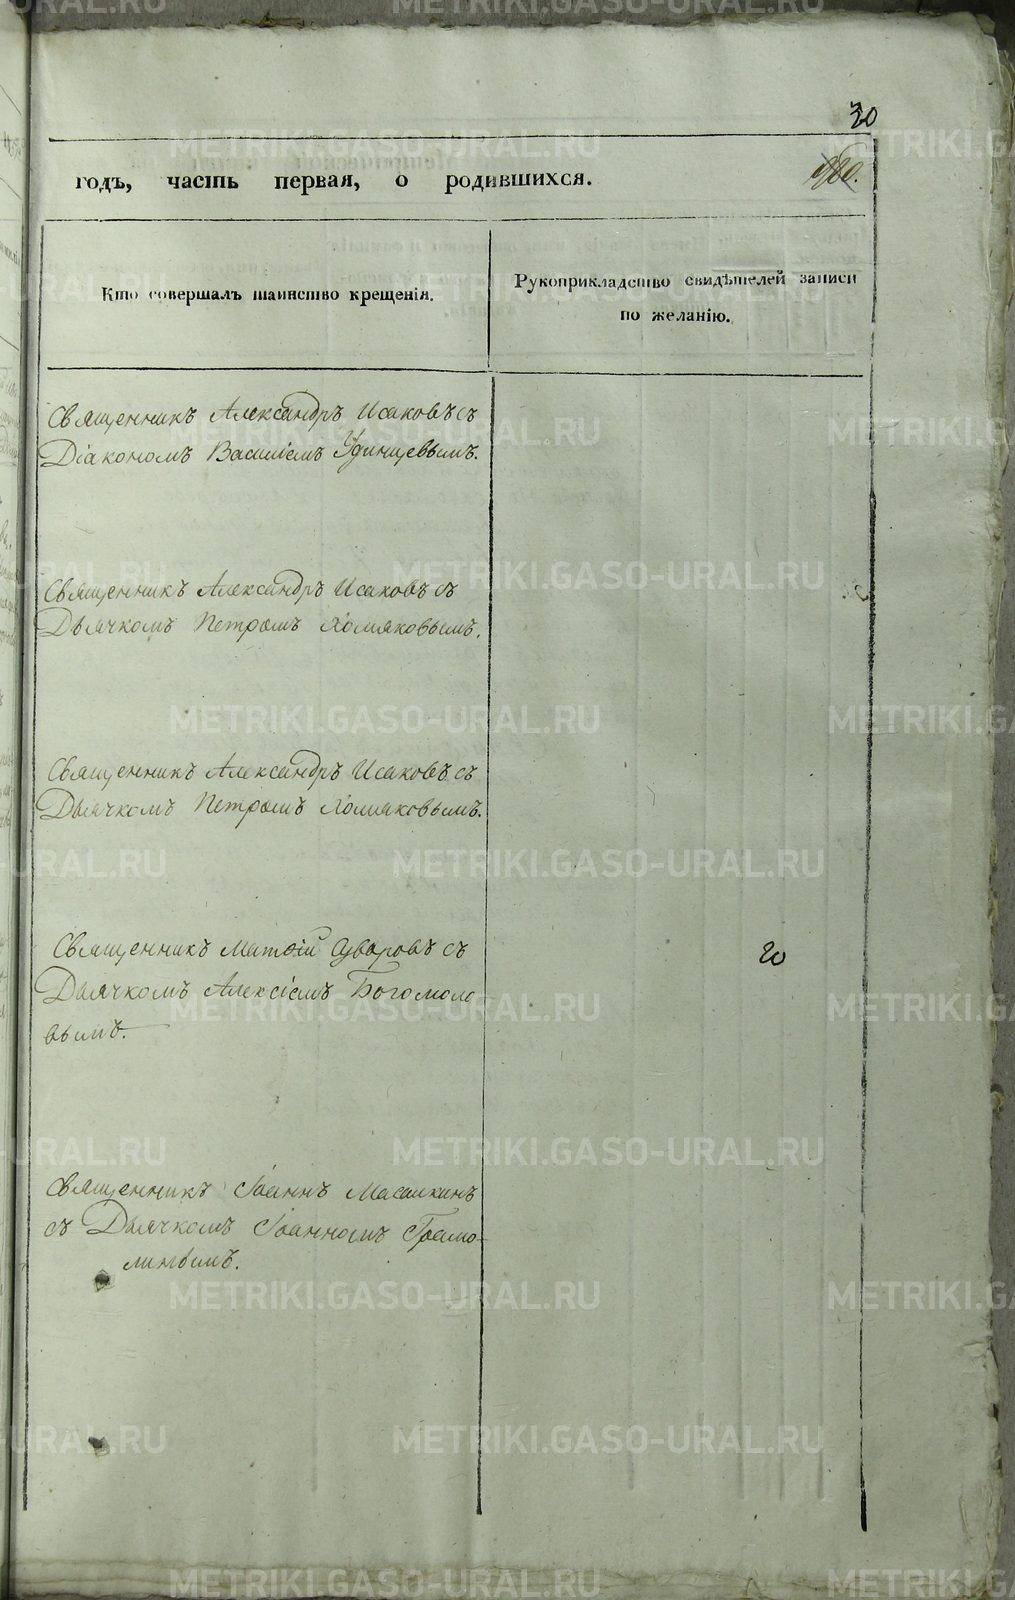 20
годъ, часть первая, о родившихся.
Кто совершалъ таинство крещенія.
Рукоприкладство свидѣтелей записи
по желанію.
Священникъ Александръ Исаковъ съ
Діакономъ Василіемъ Удинцевымъ.
Священникъ Александръ Исаковъ съ
Дьячкомъ Петромъ Хомяковымъ.
Священникъ Александръ Исаковъ съ
Дьячкомъ Петромъ Хомяковымъ.
Священникъ Матѳій Суваровъ съ
Дьячкомъ Алексіемъ Богомоло
вымъ.
20
Священникъ Іоаннъ
съ Дьячкомъ Іоанномъ
METRIKI.GASO-URAL.RU